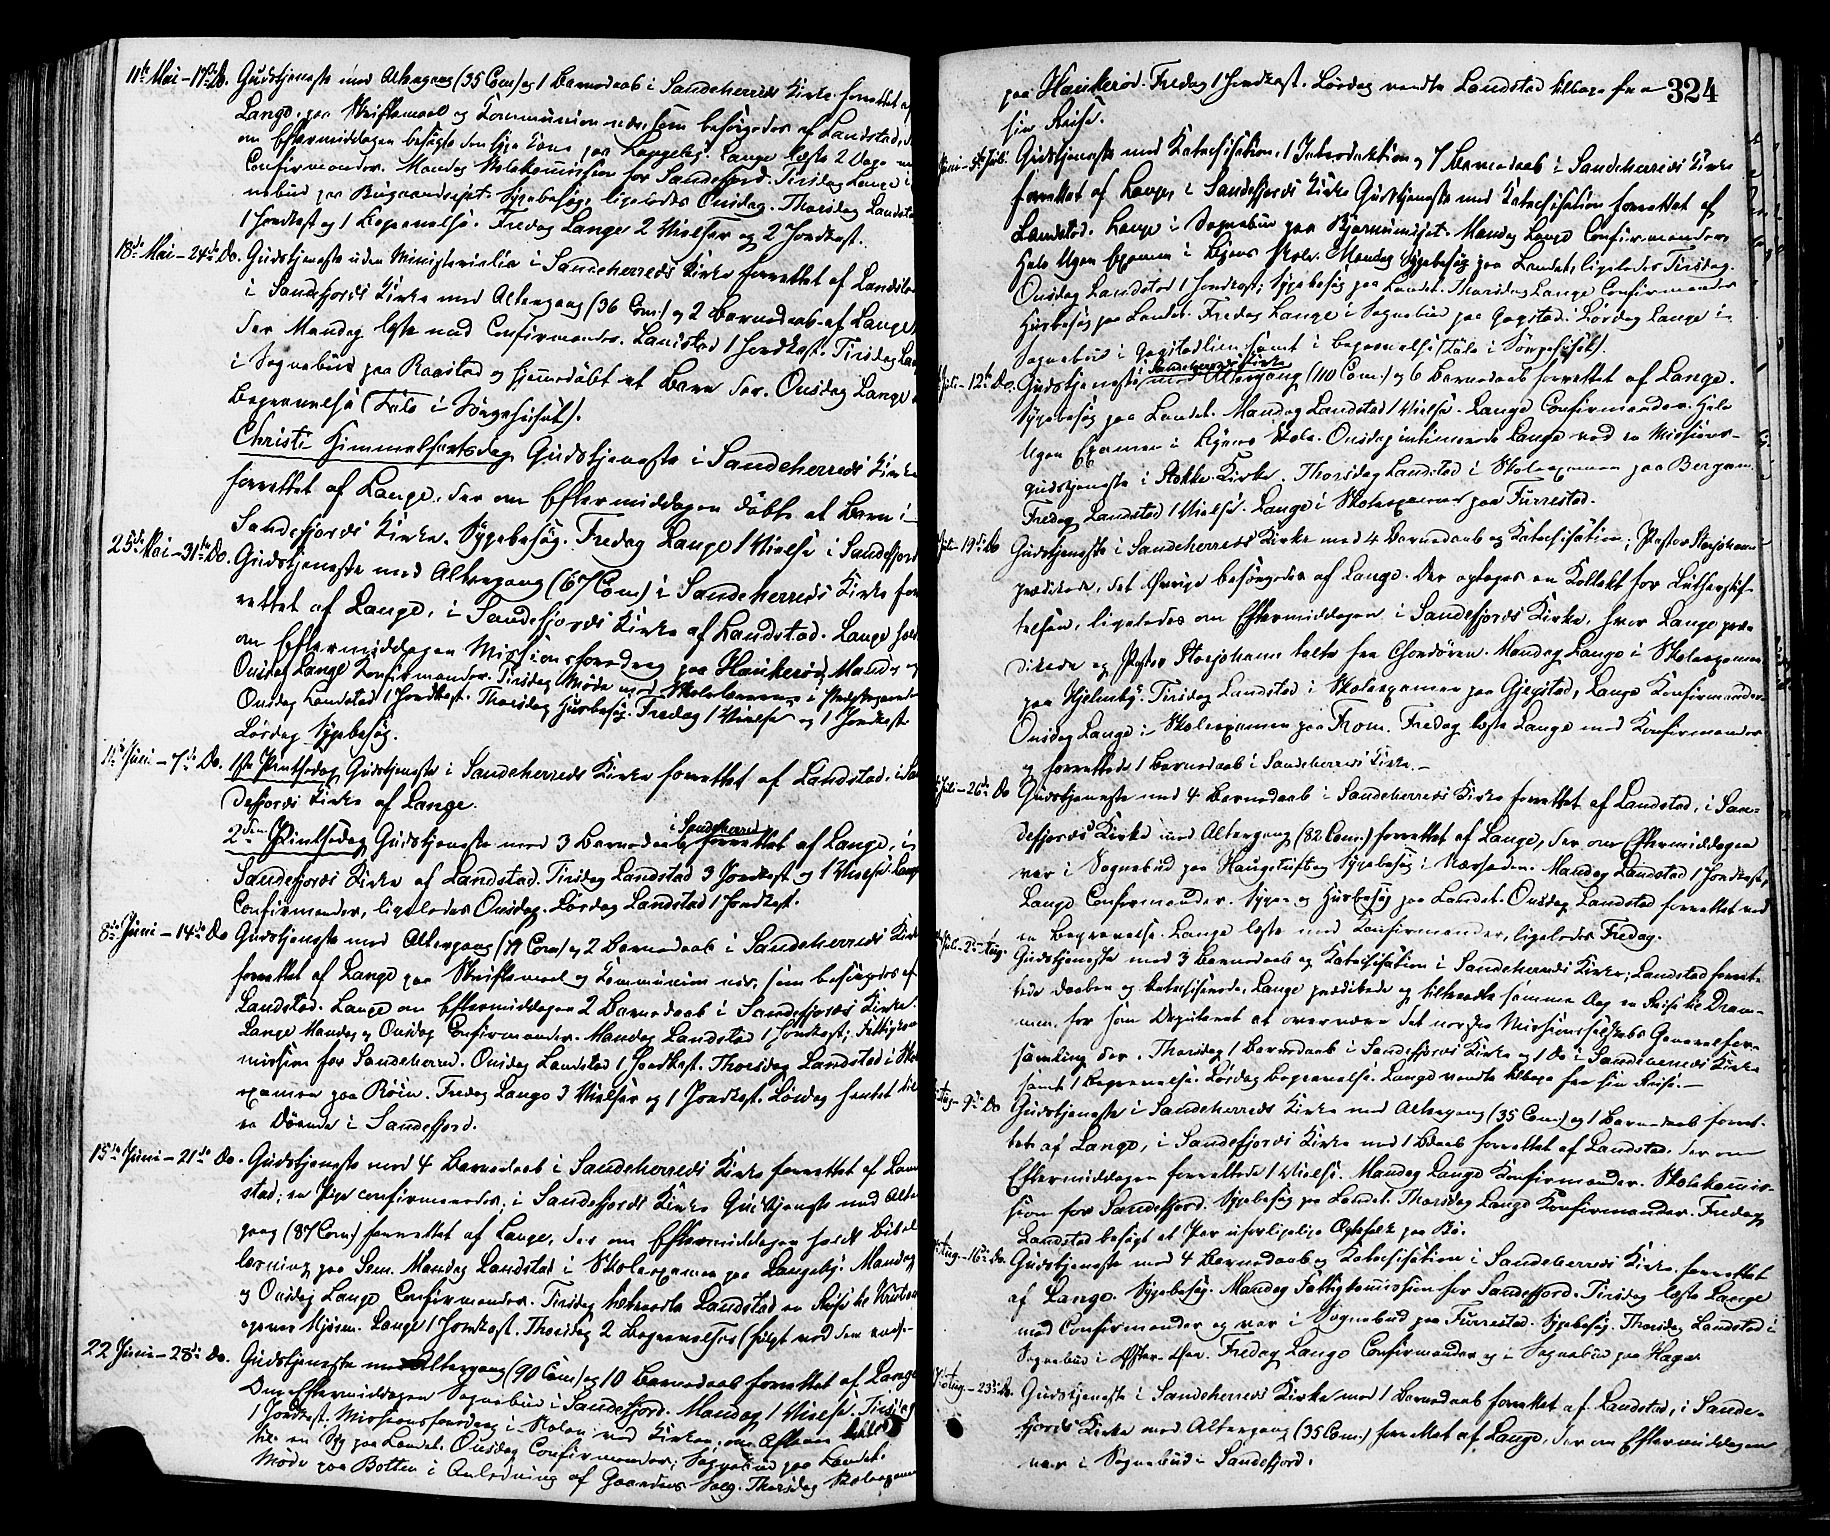 11te Mai – 17de Do. Gudstjeneste med Altergang (35 Com) og 1 Barnedaab i Sandeherreds Kirke forrettet af
Lange, paa Skriftemaal og Kommunion nær, som besørgedes af Landstad,
om Eftermiddagen besøgte den syge Kone paa Langeby. Lange læste 2 Dage med
Confirmander. Mandag Skolekommission for Sandefjord. Tirsdag Lange i
nebud paa Bugaardsejet. Sygebesøg, ligeledes Onsdag. Thorsdag Landstad
1 Jordkast og 1 Begravelse. Fredag Lange 2 Vielser og 2 Jordkast.
18de Mai – 24de Do. Gudstjeneste uden Ministerialia i Sandeherreds Kirke forrettet af Landstad
i Sandefjords Kirke med Altergang (36 Com) og 2 Barnedaab af Lange,
der Mandag læste med Confirmander. Landstad 1 Jordkast. Tirsdag Lange
i Sognebud paa Raastad og hjemmedøbt et Barn der. Onsdag Lange
Begravelse (Tale i Sørgehuset).
Christi Himmelfartsdag Gudstjeneste i Sandeherreds Kirke
forrettet af Lange, der om Eftermiddagen døbte et Barn i
Sandefjords Kirke. Sygebesøg. Fredag Lange 1 Vielse i Sandefjord
25de Mai – 31te Do. Gudstjeneste med Altergang (67 Com) i Sandeherreds Kirke for
rettet af Lange, i Sandefjords Kirke af Landstad. Lange holdt
om Eftermiddagen Missionsforedrag paa Haukerød. Mandag og
Onsdag Lange Konfirmander. Tirsdag Møde med Skolelærerne i Præstegaarden
Onsdag Landstad 1 Jordkast. Thorsdag Husbesøg. Fredag 1 Vielse og 1 Jordkast.
Lørdag Sygebesøg.
1te Juni – 7de Do. 1ste Pintsedag Gudstjeneste i Sandeherreds Kirke forrettet af Landstad, i San
defjords Kirke af Lange.
2den Pintsedag Gudstjeneste med 3 Barnedaab i Sandeherred forrettet af Lange, i
Sandefjords Kirke af Landstad. Tirsdag Landstad 3 Jordkast og 1 Vielse. Lange
Confirmander, ligeledes Onsdag. Lørdag Landstad 1 Jordkast.
8de Juni – 14de Do Gudstjeneste med Altergang (79 Com) og 2 Barnedaab i Sandeherreds Kirke
forrettet af Lange paa Skriftemaal og Kommunion nær, som besørgedes af
Landstad. Lange om Eftermiddagen 2 Barnedaab i Sandefjords Kirke.
Lange Mandag og Onsdag Confirmander. Mandag Landstad 1 Jordkast; Fattigkom
mission for Sandeherred. Onsdag Landstad 1 Jordkast. Thorsdag Landstad i Skole
examen paa Røin. Fredag Lange 3 Vielser og 1 Jordkast. Lørdag hentet til
en Døende i Sandefjord.
15de Juni – 21de Do. Gudstjeneste med 4 Barnedaab i Sandeherreds Kirke forrettet af Land
stad; en Pige confirmeredes; i Sandefjords Kirke Gudstjeneste med Alter
gang (87 Com) forrettet af Lange, der om Eftermiddagen holdt Bibel
læsning paa Sem. Mandag Landstad i Skoleexamen paa Langeby. Mandag
og Onsdag Lange Confirmander. Tirsdag tiltraadte Landstad en Reise til
egnene Mjøsen. Lange 1 Jordkast. Thorsdag 2 Begravelser (fulgt med den
22 Juni – 28de Do. Gudstjeneste med Altergang (90 Com) og 10 Barnedaab forrettet af Lange
Om Eftermiddagen Sognebud i Sandefjord. Mandag 1 Vielse. Tirsdag
1 Jordkast. Missionsforedrag i Skolen ved Kirken, om Aftenen
til en Syg paa Landet. Onsdag Confirmander, Sognebud paa Landet.
Møde paa Botten i Anledning af Gaardens Salg. Thorsdag Skoleexamen
324
paa Haukerød. Fredag 1 Jordkast. Lørdag vendte Landstad tilbage fra
sin Reise.
Juni – 5te Juli Gudstjeneste med Katechisation, 1 Introduktion og 7 Barnedaab i Sandeherreds Kirke
forrettet af Lange, i Sandefjords Kirke Gudstjeneste med Katechisation forrettet af
Landstad. Lange i Sognebud paa Bjørnumejet. Mandag Lange Confirmander,
hele Ugen Examen i Byens Skole. Mandag Sygebesøg paa Landet, ligeledes Tirsdag.
Onsdag Landstad 1 Jordkast; Sygebesøg paa Landet. Thorsdag Lange Confirmander
Husbesøg paa Landet. Fredag Lange i Sognebud paa Gogstad. Lørdag Lange i
Sognebud i Gogstadlien samt i Begravelse (Tale i Sørgehuset).
Juli – 12te Do. Gudstjeneste i Sandeherreds Kirke med Altergang (110 Com) og 6 Barnedaab forrettet af Lange.
Sygebesøg paa Landet. Mandag Landstad 1 Vielse. Lange Confirmander. Hele
Ugen Examen i Byens Skole. Onsdag intimerede Lange ved en Missions-
gudstjeneste i Stokke Kirke. Thorsdag Landstad i Skoleexamen paa Bergan.
Fredag Landstad 1 Vielse. Lange i Skoleexamen paa Furrestad.
Juli – 19de Do Gudstjeneste i Sandeherreds Kirke med 4 Barnedaab og Katechisation; Pastor Storjohann
prædikede, det Øvrige besørgedes af Lange. Der optoges en Kollekt for Lutherstif-
telsen, ligeledes om Eftermiddagen i Sandefjords Kirke, hvor Lange præ-
dikede og Pastor Storjohann talte fra Chordøren. Mandag Lange i Skoleexamen
paa Hjelmby. Tirsdag Landstad i Skoleexamen paa Gjogstad, Lange Konfirmander.
Onsdag Lange i Skoleexamen paa From. Fredag læste Lange med Konfirmander
og forrettede 1 Barnedaab i Sandeherreds Kirke. –
Juli – 26de Do Gudstjeneste med 4 Barnedaab i Sandeherreds Kirke forrettet af Landstad, i San-
defjords Kirke med Altergang (82 Com) forrettet af Lange, der om Eftermiddagen
var i Sognebud paa Haugstuft og Sygebesøg i Nærheden. Mandag Landstad 1 Jordkast,
Lange Confirmander. Syge- og Husbesøg paa Landet. Onsdag Landstad forrettet ved
en Begravelse. Lange læste med Konfirmander, ligeledes Fredag.
Juli – 2den Aug. Gudstjeneste med 3 Barnedaab og Katechisation i Sandeherreds Kirke; Landstad forret-
tede Daaben og katechiserede, Lange prædikede og tiltraadte samme Dag en Reise til Dram-
men, for som Deputeret at overvære det norske Missionsselskabs Generalfor-
samling der. Thorsdag 1 Barnedaab i Sandefjords Kirke og 1 Do i Sandeherreds Kirke
samt 1 Begravelse. Lørdag Begravelse. Lange vendte tilbage fra sin Reise. –
Aug – 9de Do Gudstjeneste i Sandeherreds Kirke med Altergang (35 Com) og 1 Barnedaab forret-
tet af Lange, i Sandefjords Kirke med 1 Bdaab forrettet af Landstad, der om
Eftermiddagen forrettede 1 Vielse. Mandag Lange Konfirmander. Skolekomis-
sion for Sandefjord. Sygebesøg paa Landet. Thorsdag Lange Konfirmander. Fredag
Landstad besøgt et Par uforligelige Ægtefolk paa Bø.
Aug – 16de Do. Gudstjeneste med 4 Barnedaab og Katechisation i Sandeherreds Kirke forrettet
af Lange. Sygebesøg. Mandag Fattigkomission for Sandefjord. Tirsdag læste Lange
med Confirmander og var i Sognebud paa Furrestad. Sygebesøg. Thorsdag Landstad i
Sognebud i Øster-Øen. Fredag Lange Confirmander og i Sognebud paa Hagan.
Aug – 23de Do. Gudstjeneste i Sandeherreds Kirke med 1 Barnedaab forrettet af Landstad, i Sande-
fjords Kirke med Altergang (35 Com) forrettet af Lange, der om Eftermiddagen
var i Sognebud i Sandefjord.